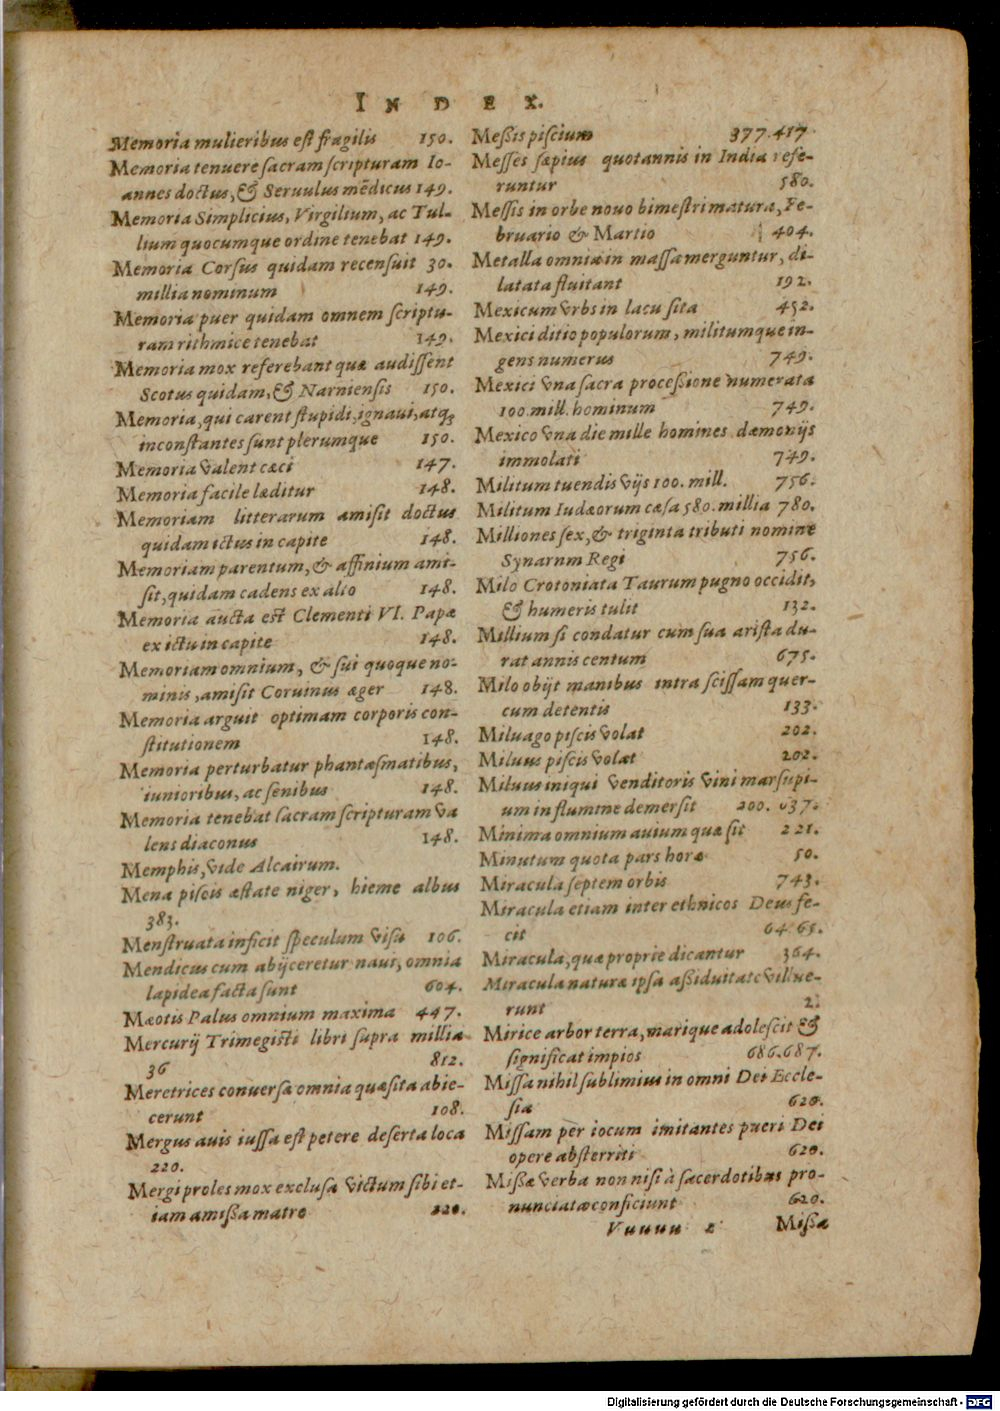 INDEX.
Memoria mulieribus est fragilis 150.
Memoria tenuere sacram scripturam Io-
annes doctus, & Seruulus mēdicus 149.
Memoria Simplicius, Virgilium, ac Tul-
lium quocumque ordine tenebat 149.
Memoria Corsus quidam recensuit 30.
millia nominum 149.
Memoria puer quidam omnem scriptu-
ram rithmice tenebat 149.
Memoria mox referebant quæ audissent
Scotus quidam, & Narniensis 150.
Memoria, qui carent stupidi, ignaui, atq3
inconstantes sunt plerumque 150.
Memoria valent cæci 147.
Memoria facile læditur 148.
Memoriam litterarum amisit doctus
quidam ictus in capite 148.
Memoriam parentum, & affinium ami-
sit, quidam cadens ex alto 148.
Memoria aucta est Clementi VI. Papæ
ex ictu in capite 148.
Memoriam omnium, & sui quoque no-
minis, amisit Coruinus æger 148.
Memoria arguit optimam corporis con-
stitutionem 148.
Memoria perturbatur phantasmatibus,
iunioribus, ac senibus 148.
Memoria tenebat sacram scripturam va
lens diaconus 148.
Memphis, vide Alcairum.
Mena piscis æstate niger, hieme albus
383.
Menstruata inficit speculum visu 106.
Mendicus cum abijceretur naui, omnia
lapidea facta sunt 604.
Mæotis Palus omnium maxima 447.
Mercurij Trimegisti libri supra millia
36 812.
Meretrices conuersæ omnia quæsita abie-
cerunt 108.
Mergus auis iussa est petere deserta loca
220.
Mergi proles mox exclusa victum sibi et-
iam amissa matre 220.
Messis piscium 377.417.
Messes sæpius quotannis in India refe-
runtur 580.
Messis in orbe nouo bimestri matura, Fe-
bruario & Martio 404.
Metalla omnia in massa merguntur, di-
latata fluitant 192.
Mexicum vrbs in lacu sita 452.
Mexici ditio populorum, militumque in-
gens numerus 749.
Mexici vna sacra processione numerata
100. mill. hominum 749.
Mexico vna die mille homines dæmonijs
immolati 749.
Militum tuendis vijs 100. mill. 756.
Militum Iudæorum cæsa 580. millia 780.
Milliones sex, & triginta tributi nomine
Synarnm Regi 756.
Milo Crotoniata Taurum pugno occidit,
& humeris tulit 132.
Millium si condatur cum sua arista du-
rat annis centum 675.
Milo obijt manibus intra scissam quer-
cum detentis 133.
Miluago piscis volat 202.
Miluus piscis volat 202.
Miluus iniqui venditoris vini marsupi-
um in flumine demersit 200. 637.
Minima omnium auium quæ sit 221.
Minutum quota pars horæ 50.
Miracula septem orbis 743.
Miracula etiam inter ethnicos Deus fe-
cit 64.65.
Miracula, quæ proprie dicantur 364.
Miracula naturæ ipsa assiduitate viliue-
runt 2.
Mirice arbor terra, marique adolescit &
significat impios 686.687.
Missa nihil sublimius in omni Dei Eccle-
sia 620.
Missam per iocum imitantes pueri Dei
opere absterriti 620.
Missæ verba non nisi à sacerdotibus pro-
nunciata conficiunt 620.
Vuuuu 2 Missæ
Digitalisierung gefördert durch die Deutsche Forschungsgemeinschaft - DFG